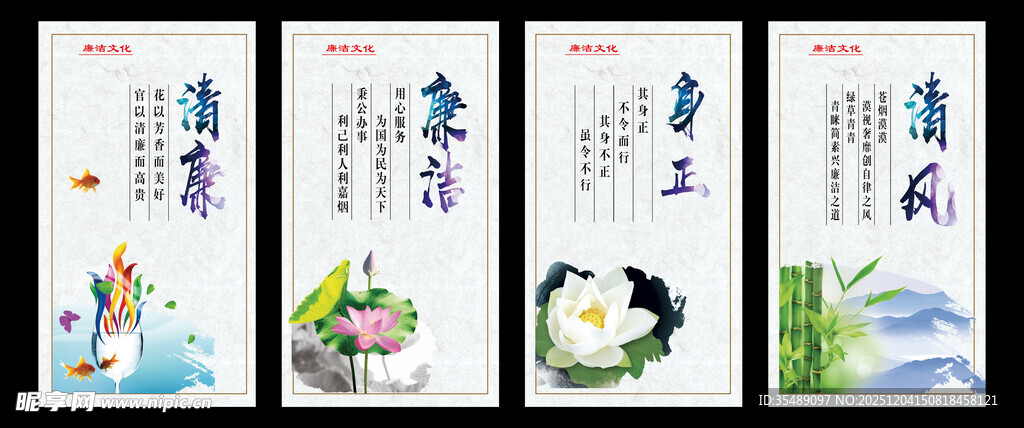 廉洁文化
清廉
花以芳香而美好
官以清廉而高贵
廉洁文化
廉洁
用心服务
为国为民为天下
秉公办事
利己利人利嘉烟
廉洁文化
身正
其身正
不令而行
其身不正
虽令不行
廉洁文化
清风
苍烟漠漠
漠视奢靡创自律之风
绿草青青
青睐简素兴廉洁之道
昵享网 www.nipic.cn
ID:35489097 NO:20251204150818458121